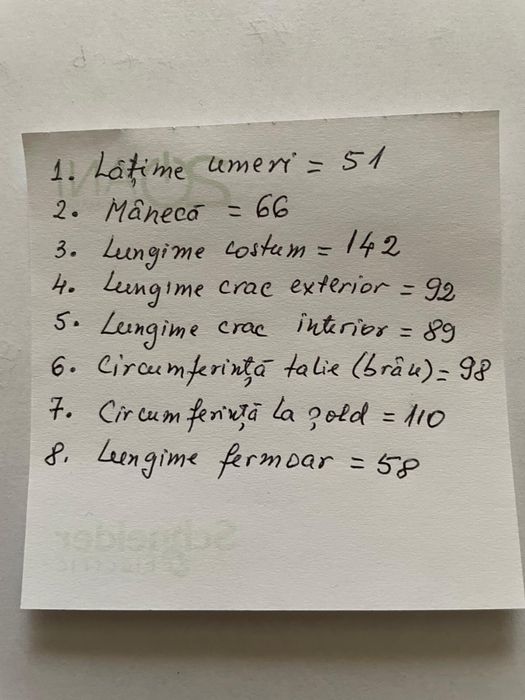 1. Lățime umeri = 51
2. Mânecă = 66
3. Lungime costum = 142
4. Lungime crac exterior = 92
5. Lungime crac interior = 89
6. Circumferință talie (brâu) = 98
7. Circumferință la șold = 110
8. Lungime fermoar = 58
Schneider
Electric